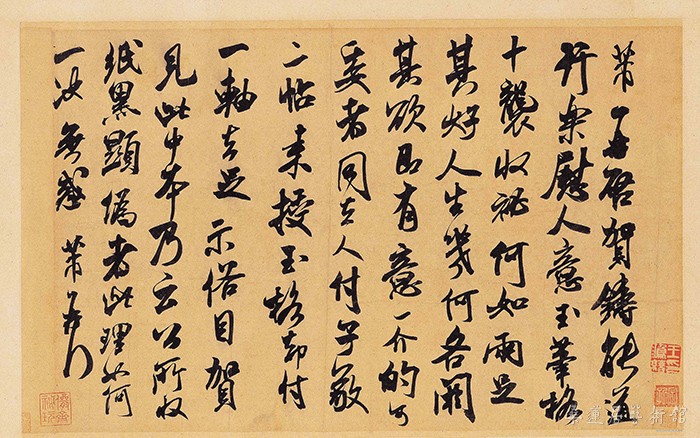 芾再啟賀鑄能道
行樂慰人意玉筆格
十襲收祕何如兩足
其好人生幾何各闕
其欲即有意一介的可
委者同去人付子敬
二帖來授玉格却付
一軸去足下示俗目賀
見此中本乃云公所收
紙黑顯偽者此理如何
一決無惑芾再拜